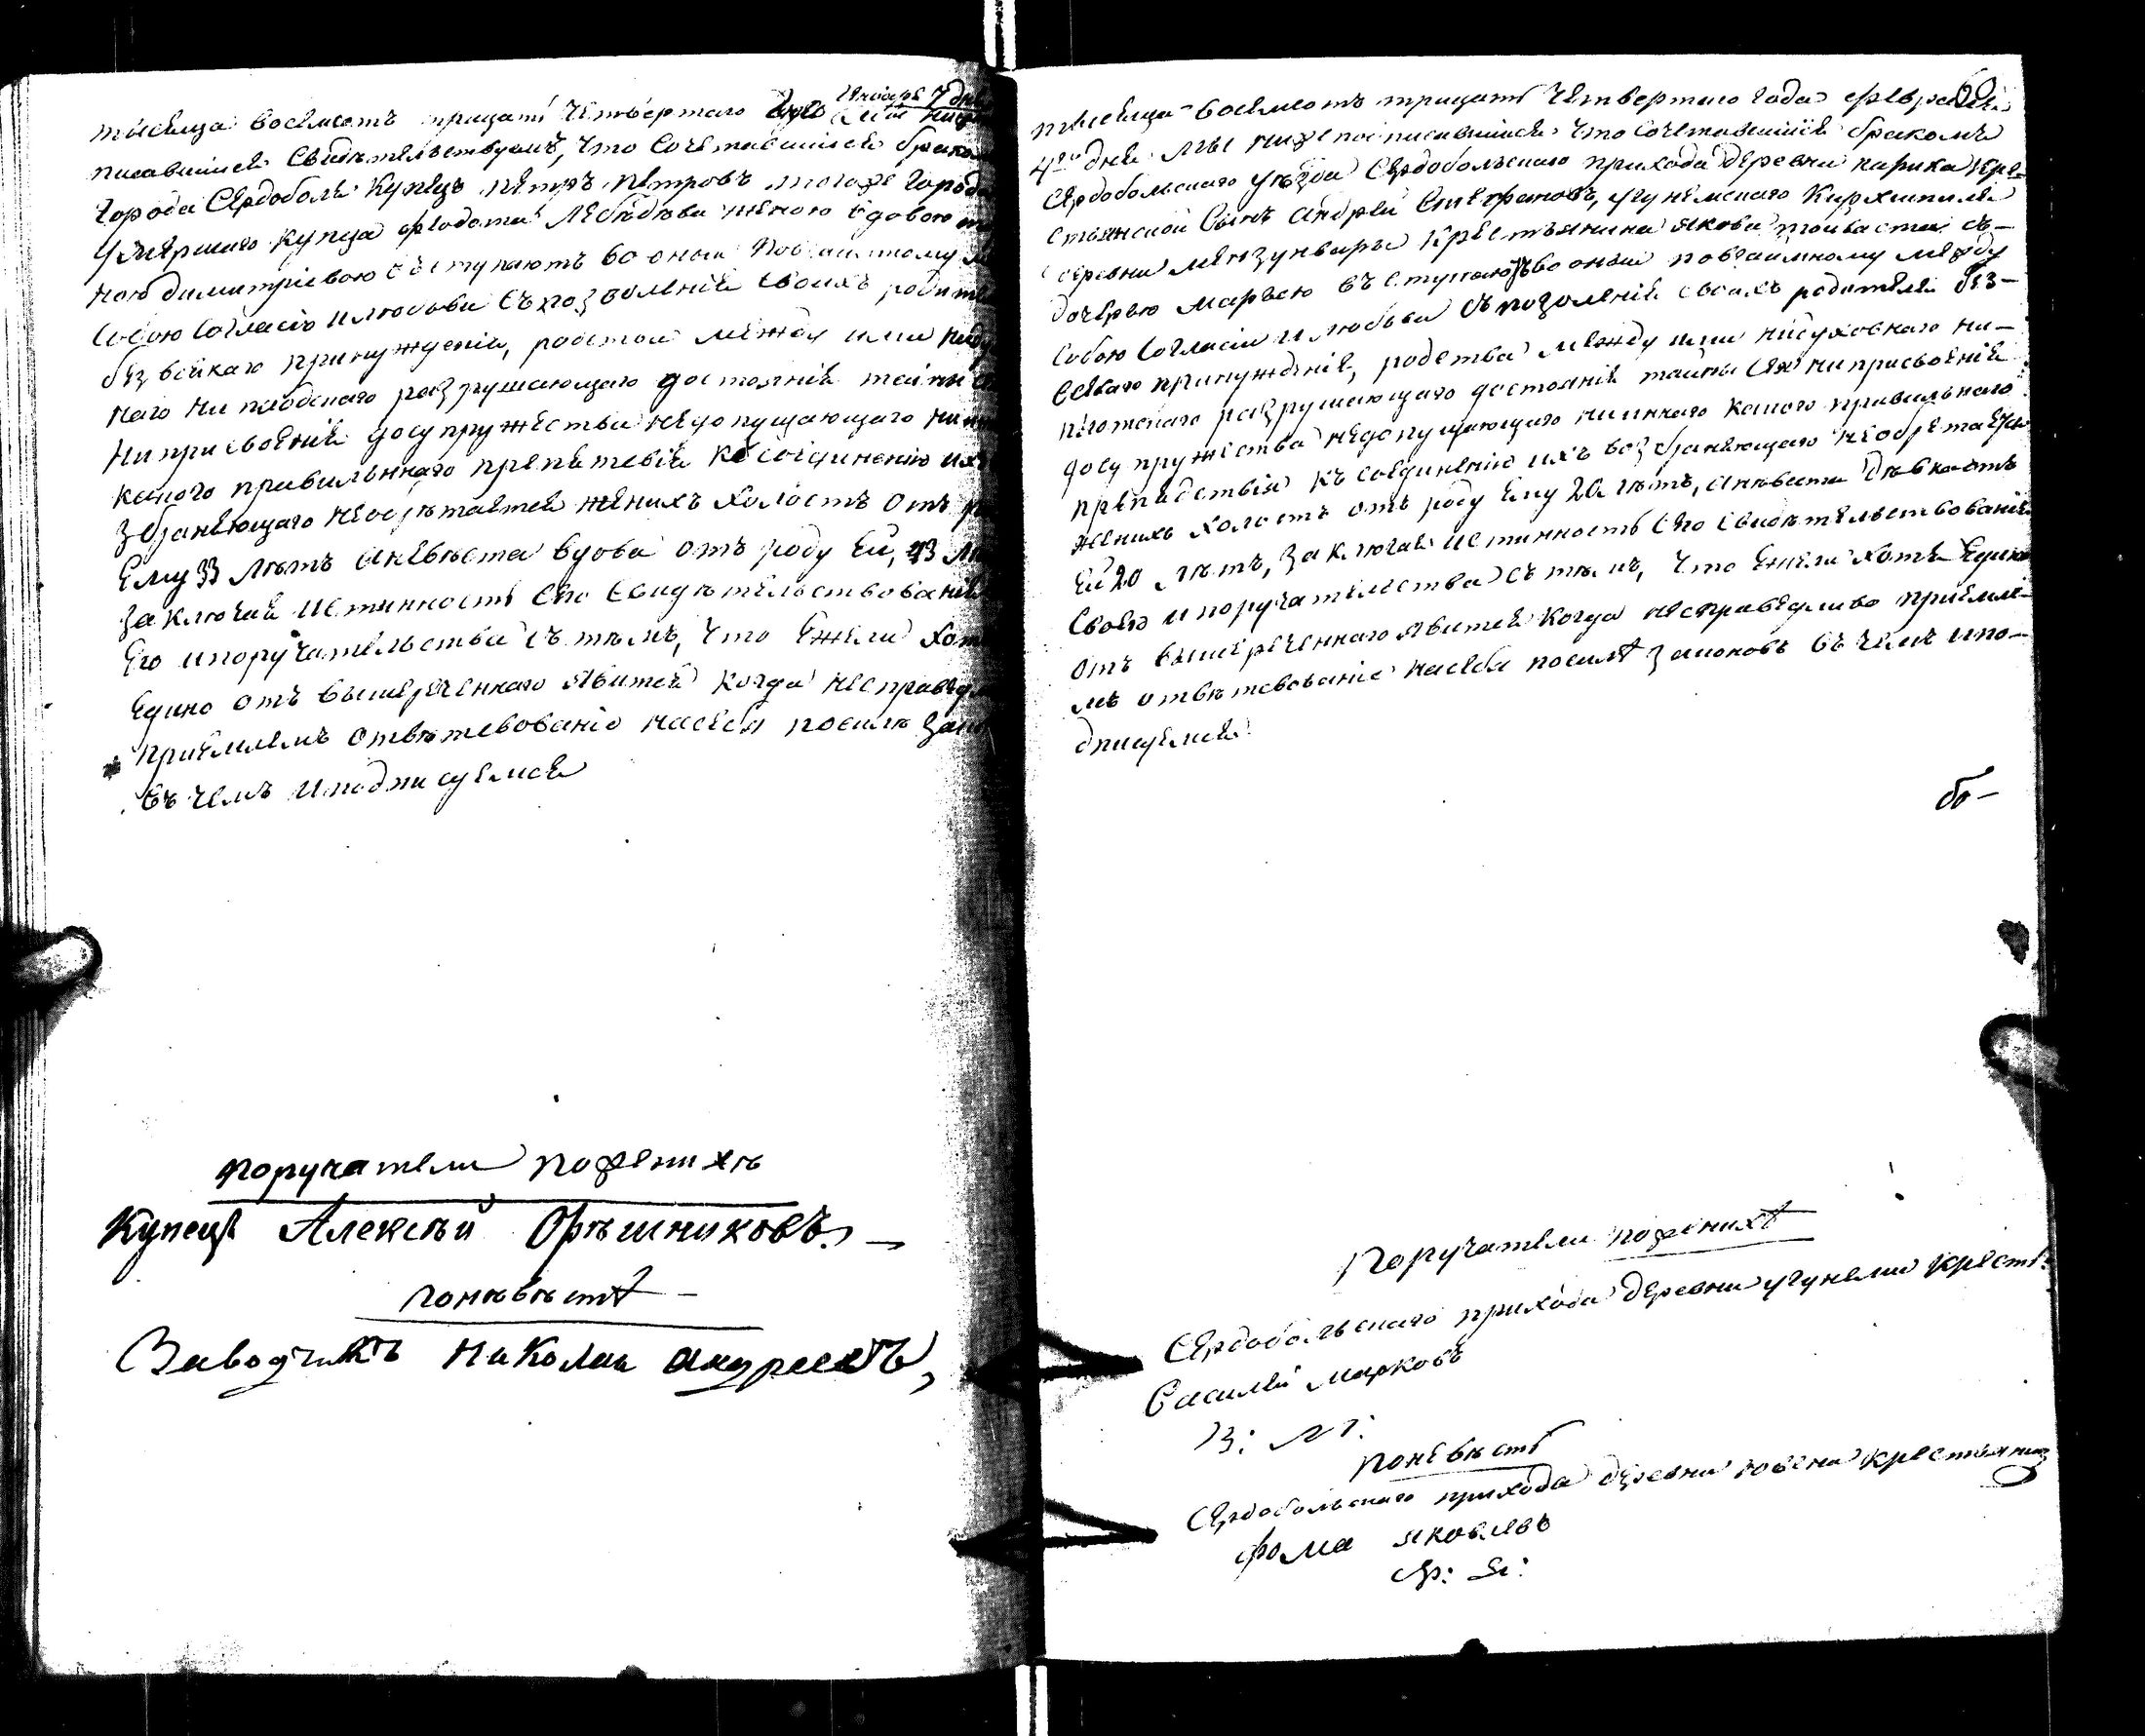 тысяща восемсотъ трицать четвертаго года Января 7 дня
писавшіися свидѣтельствуемъ, что сочетавшіися браком
города Сердоболя купецъ Петръ Петровъ тогоже города
умершаго купца Федота Лебедева женою вдовою
ною димитріевою въступаютъ во оный повзаимному
собою согласію и любови съ позволенія своихъ родите
без всякаго принужденія, родства между ими нид
наго ни плодскаго разрушающаго достояніе тайны
ни присвоенія досупружества недопущающаго ни
какого правильнаго препятствія къ соединенію их
збраняющаго необрѣтается женихъ холостъ отъ
ему 33 лѣтъ а невѣста вдова отъ роду ей, 43
заключая истинность сего свидѣтельствованія
его и поручательства съ тѣмъ, что ежели хотя
едино отъ вышереченнаго явится когда несправед
приемлемъ отвѣтствованіе на себя по силѣ зако
въ чемъ и подписуемся
поручатели по женихѣ
Купецъ Алексѣй Орѣшниковъ. —
по невѣстѣ —
Заводчикъ Николаи андреевъ,
60
тысяща восемсотъ трицать четвертаго года февраля
4го дня мы нижеподписавшіися что сочетавшіися бракомъ
Сердобольскаго уѣзда Сердобольскаго прихода деревни кре-
стьянской сынъ Андрей Стефановъ, угунемскаго Кирхшпиля
деревни крестьянина якова съ-
дочерью Марьею въступаютъ во оный повзаимному между
собою согласію и любови съ позоленія своихъ родителя без-
всякаго принужденія, родства между ими нидуховнаго ни-
плотскаго разрушающаго достояніе тайны сея ни присвоенія
досупружества недопущающаго ни инаго какого правильнаго
препядствія къ соединенію ихъ возбраняющаго необрѣтается
женихъ холостъ отъ роду ему 20 лѣтъ, а невѣста дѣвка отъ
ей 20 лѣтъ, заключая истинность сего свидѣтельствованія
своего и поручателства съ тѣмъ, что ежели хотя едино
отъ вышереченнаго явится когда несправедливо приемле-
мъ отвѣтсвованіе на себя по силѣ законовъ въ чемъ и по-
дписуемся
бо-
Поручатели по женихѣ
Сердобольскаго прихода деревни угунели крестъ:
Василей Марковъ
В: М:
по невѣстѣ
Сердобольскаго прихода деревни крестьянинъ
фома яковлевъ